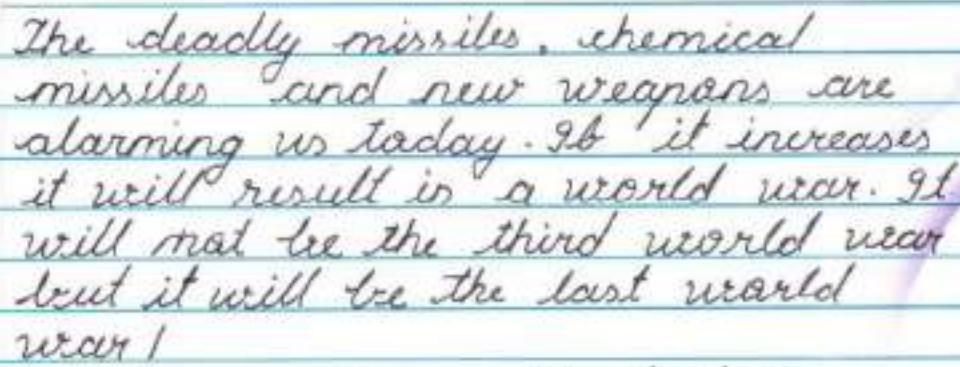 The deadly missiles, chemical
missiles and new weapons are
alarming us today. If it increases
it will result in a world war. It
will not be the third world war
but it will be the last world
war!